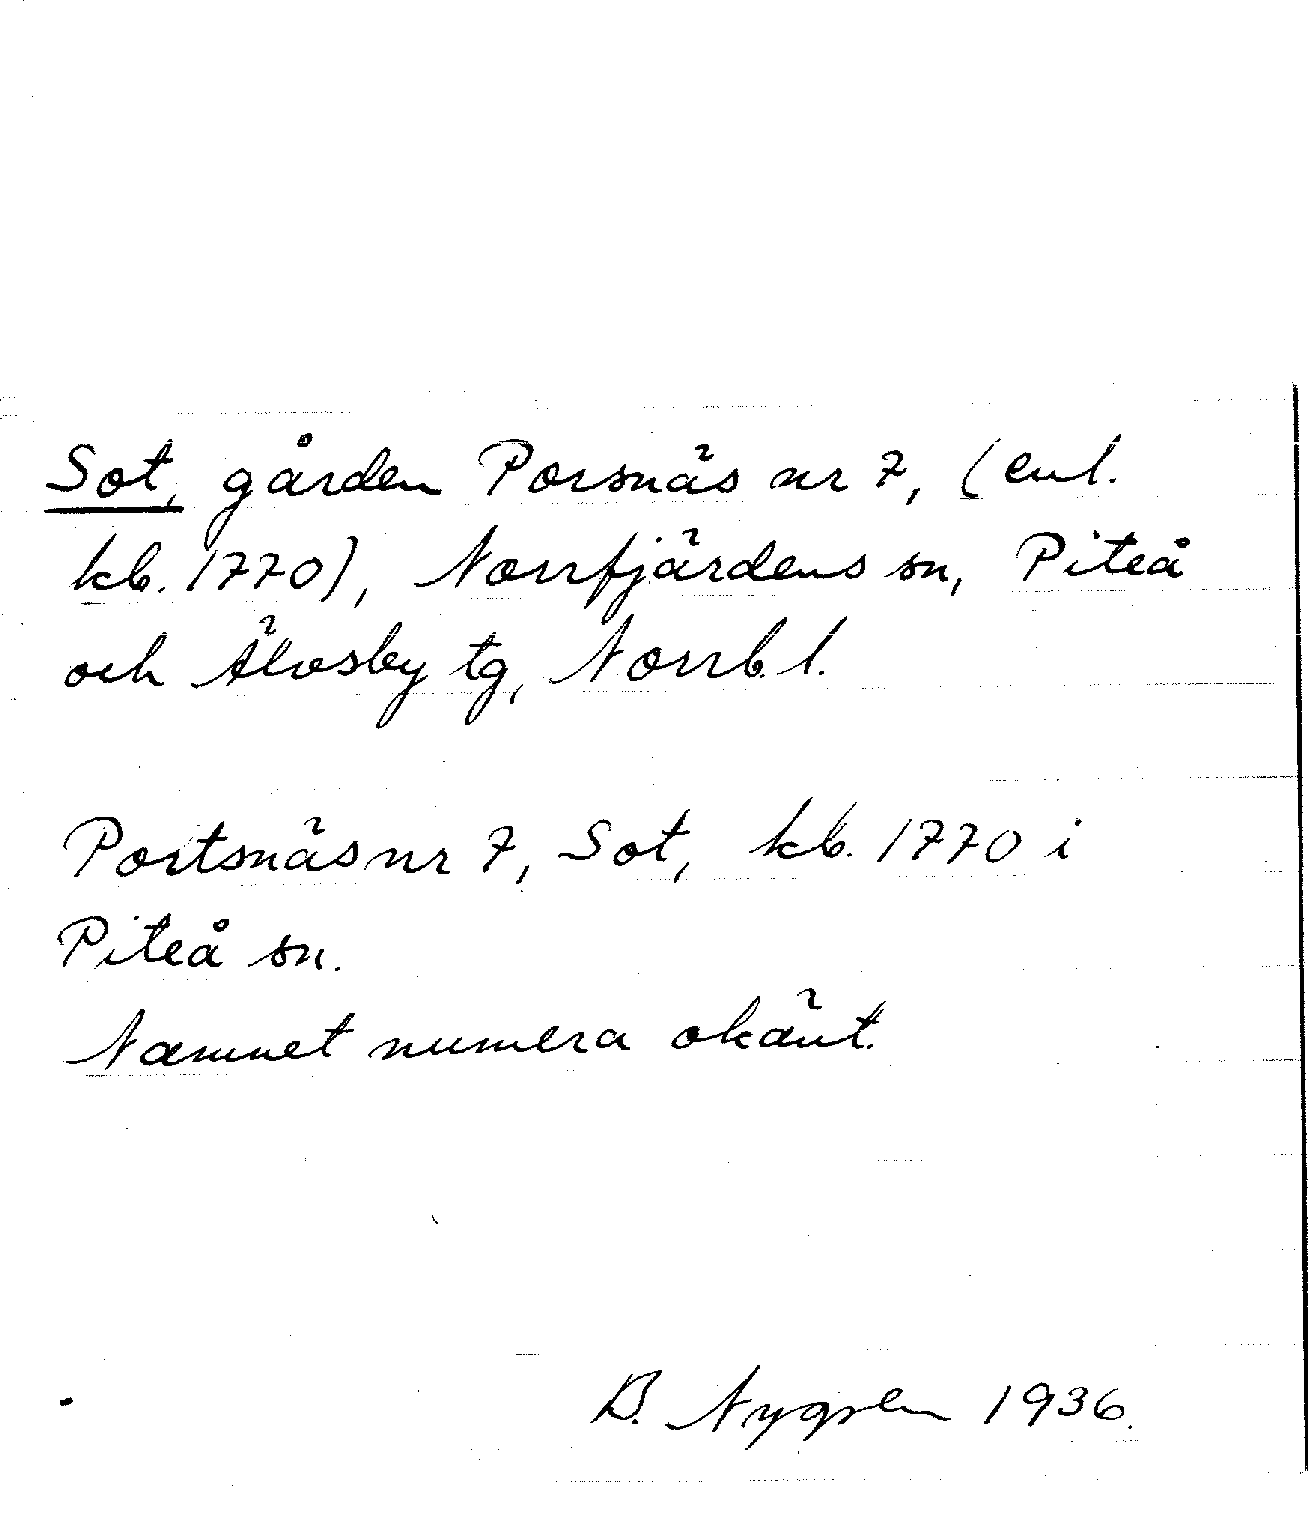 Sot, gården Porsnäs nr 7, (enl.
kb. 1770), Norrfjärdens sn, Piteå
och Älvsby tg, Norrb. l.
Portsnäs nr 7, Sot, kb. 1770 i
Piteå sn.
Namnet numera okänt.
B. Nygren 1936.